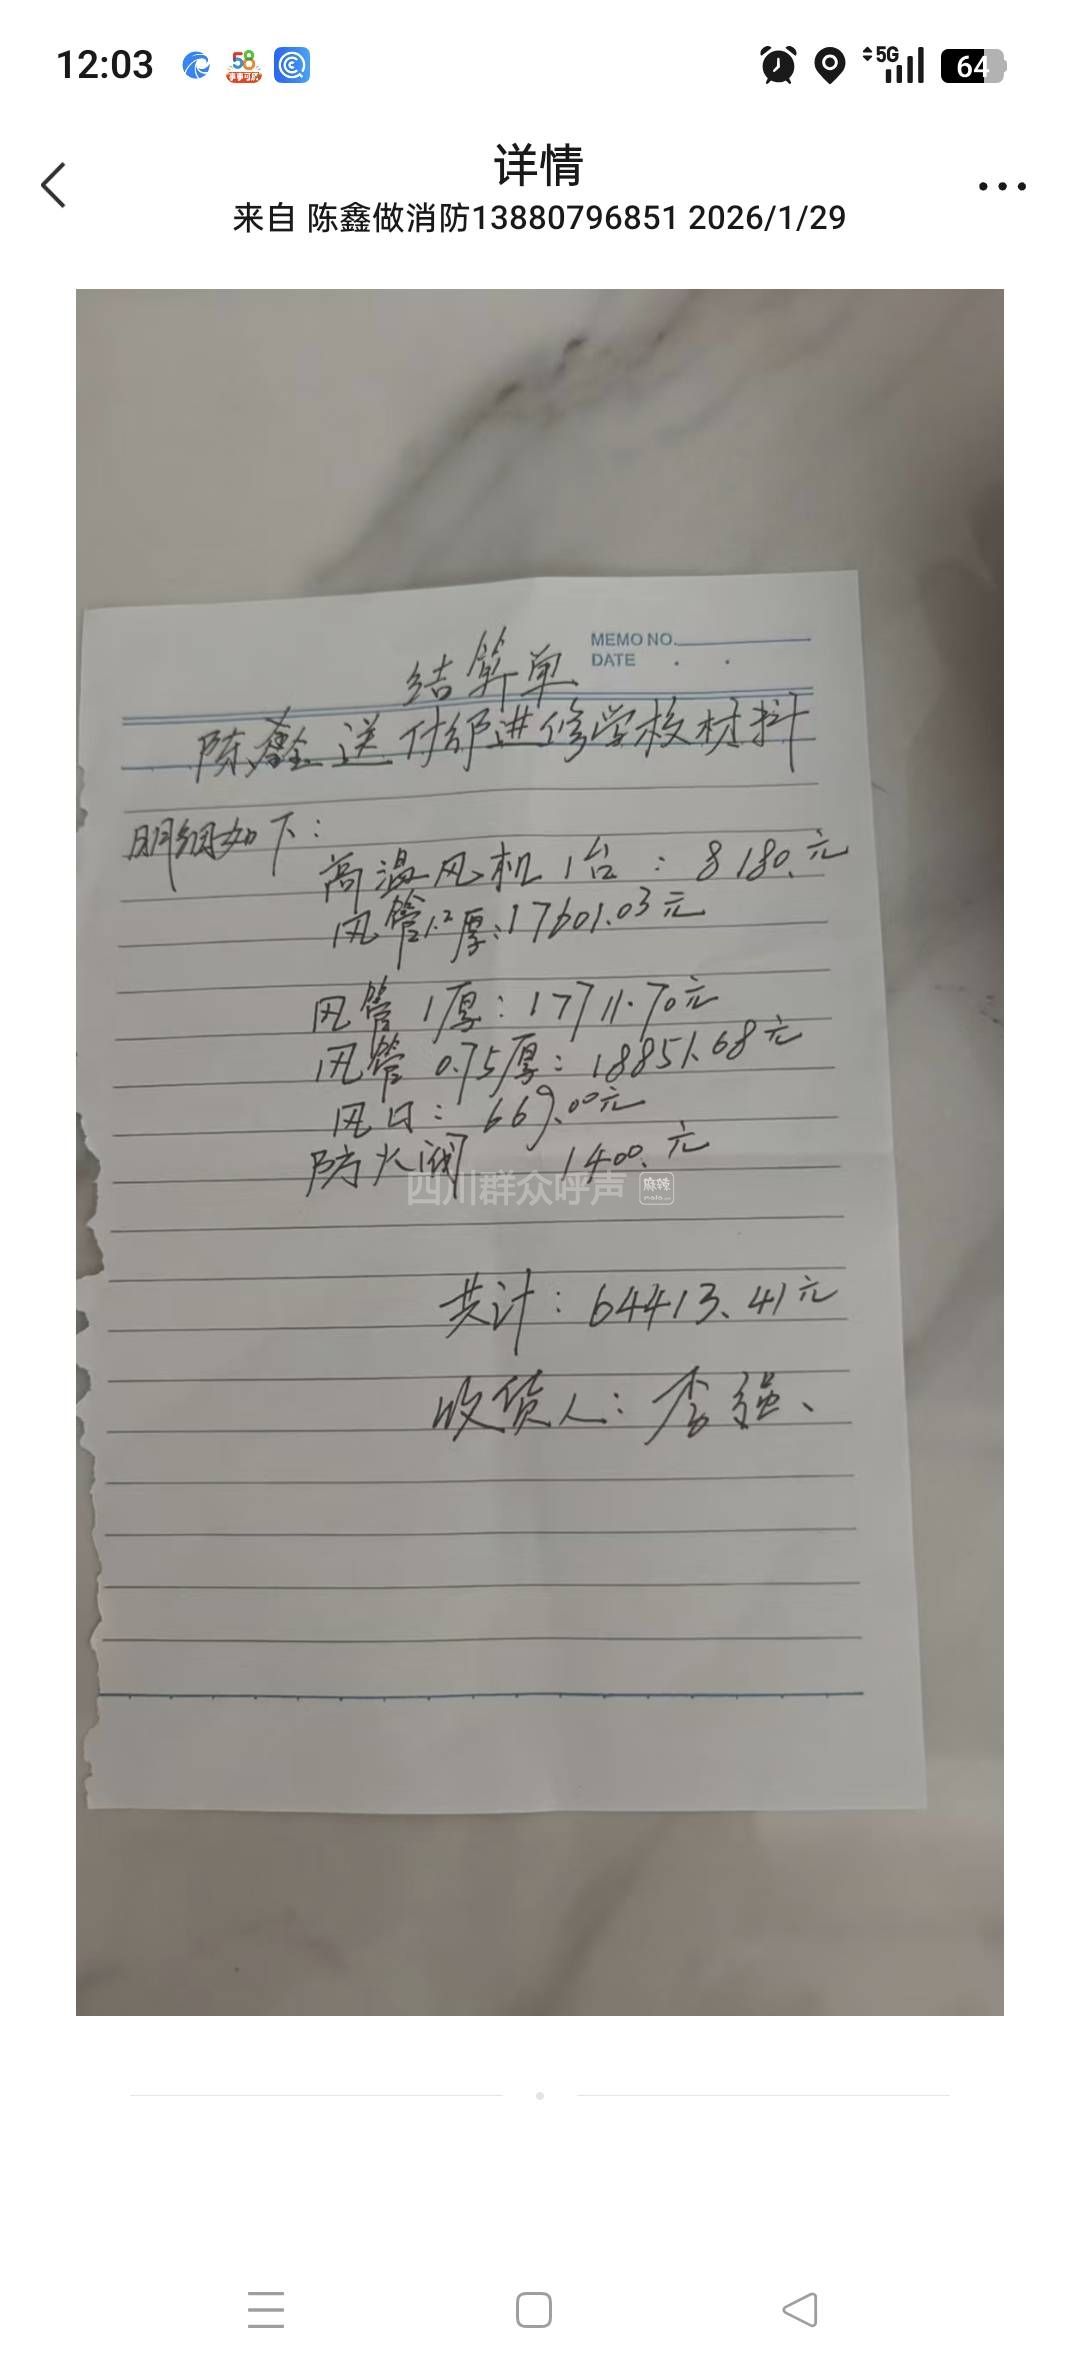 12:03
58
5G
64
详情
来自 陈鑫做消防13880796851 2026/1/29
MEMO NO.
DATE . .
结算单
陈鑫送付绍进修学校材料
明细如下：
高温风机1台：8180.元
风管1.2厚：17601.03元
风管1厚：17711.70元
风管0.75厚：18851.68元
风口：669.00元
防火阀 1400.元
四川群众呼声 麻辣
共计：64413.41元
收货人：李强、